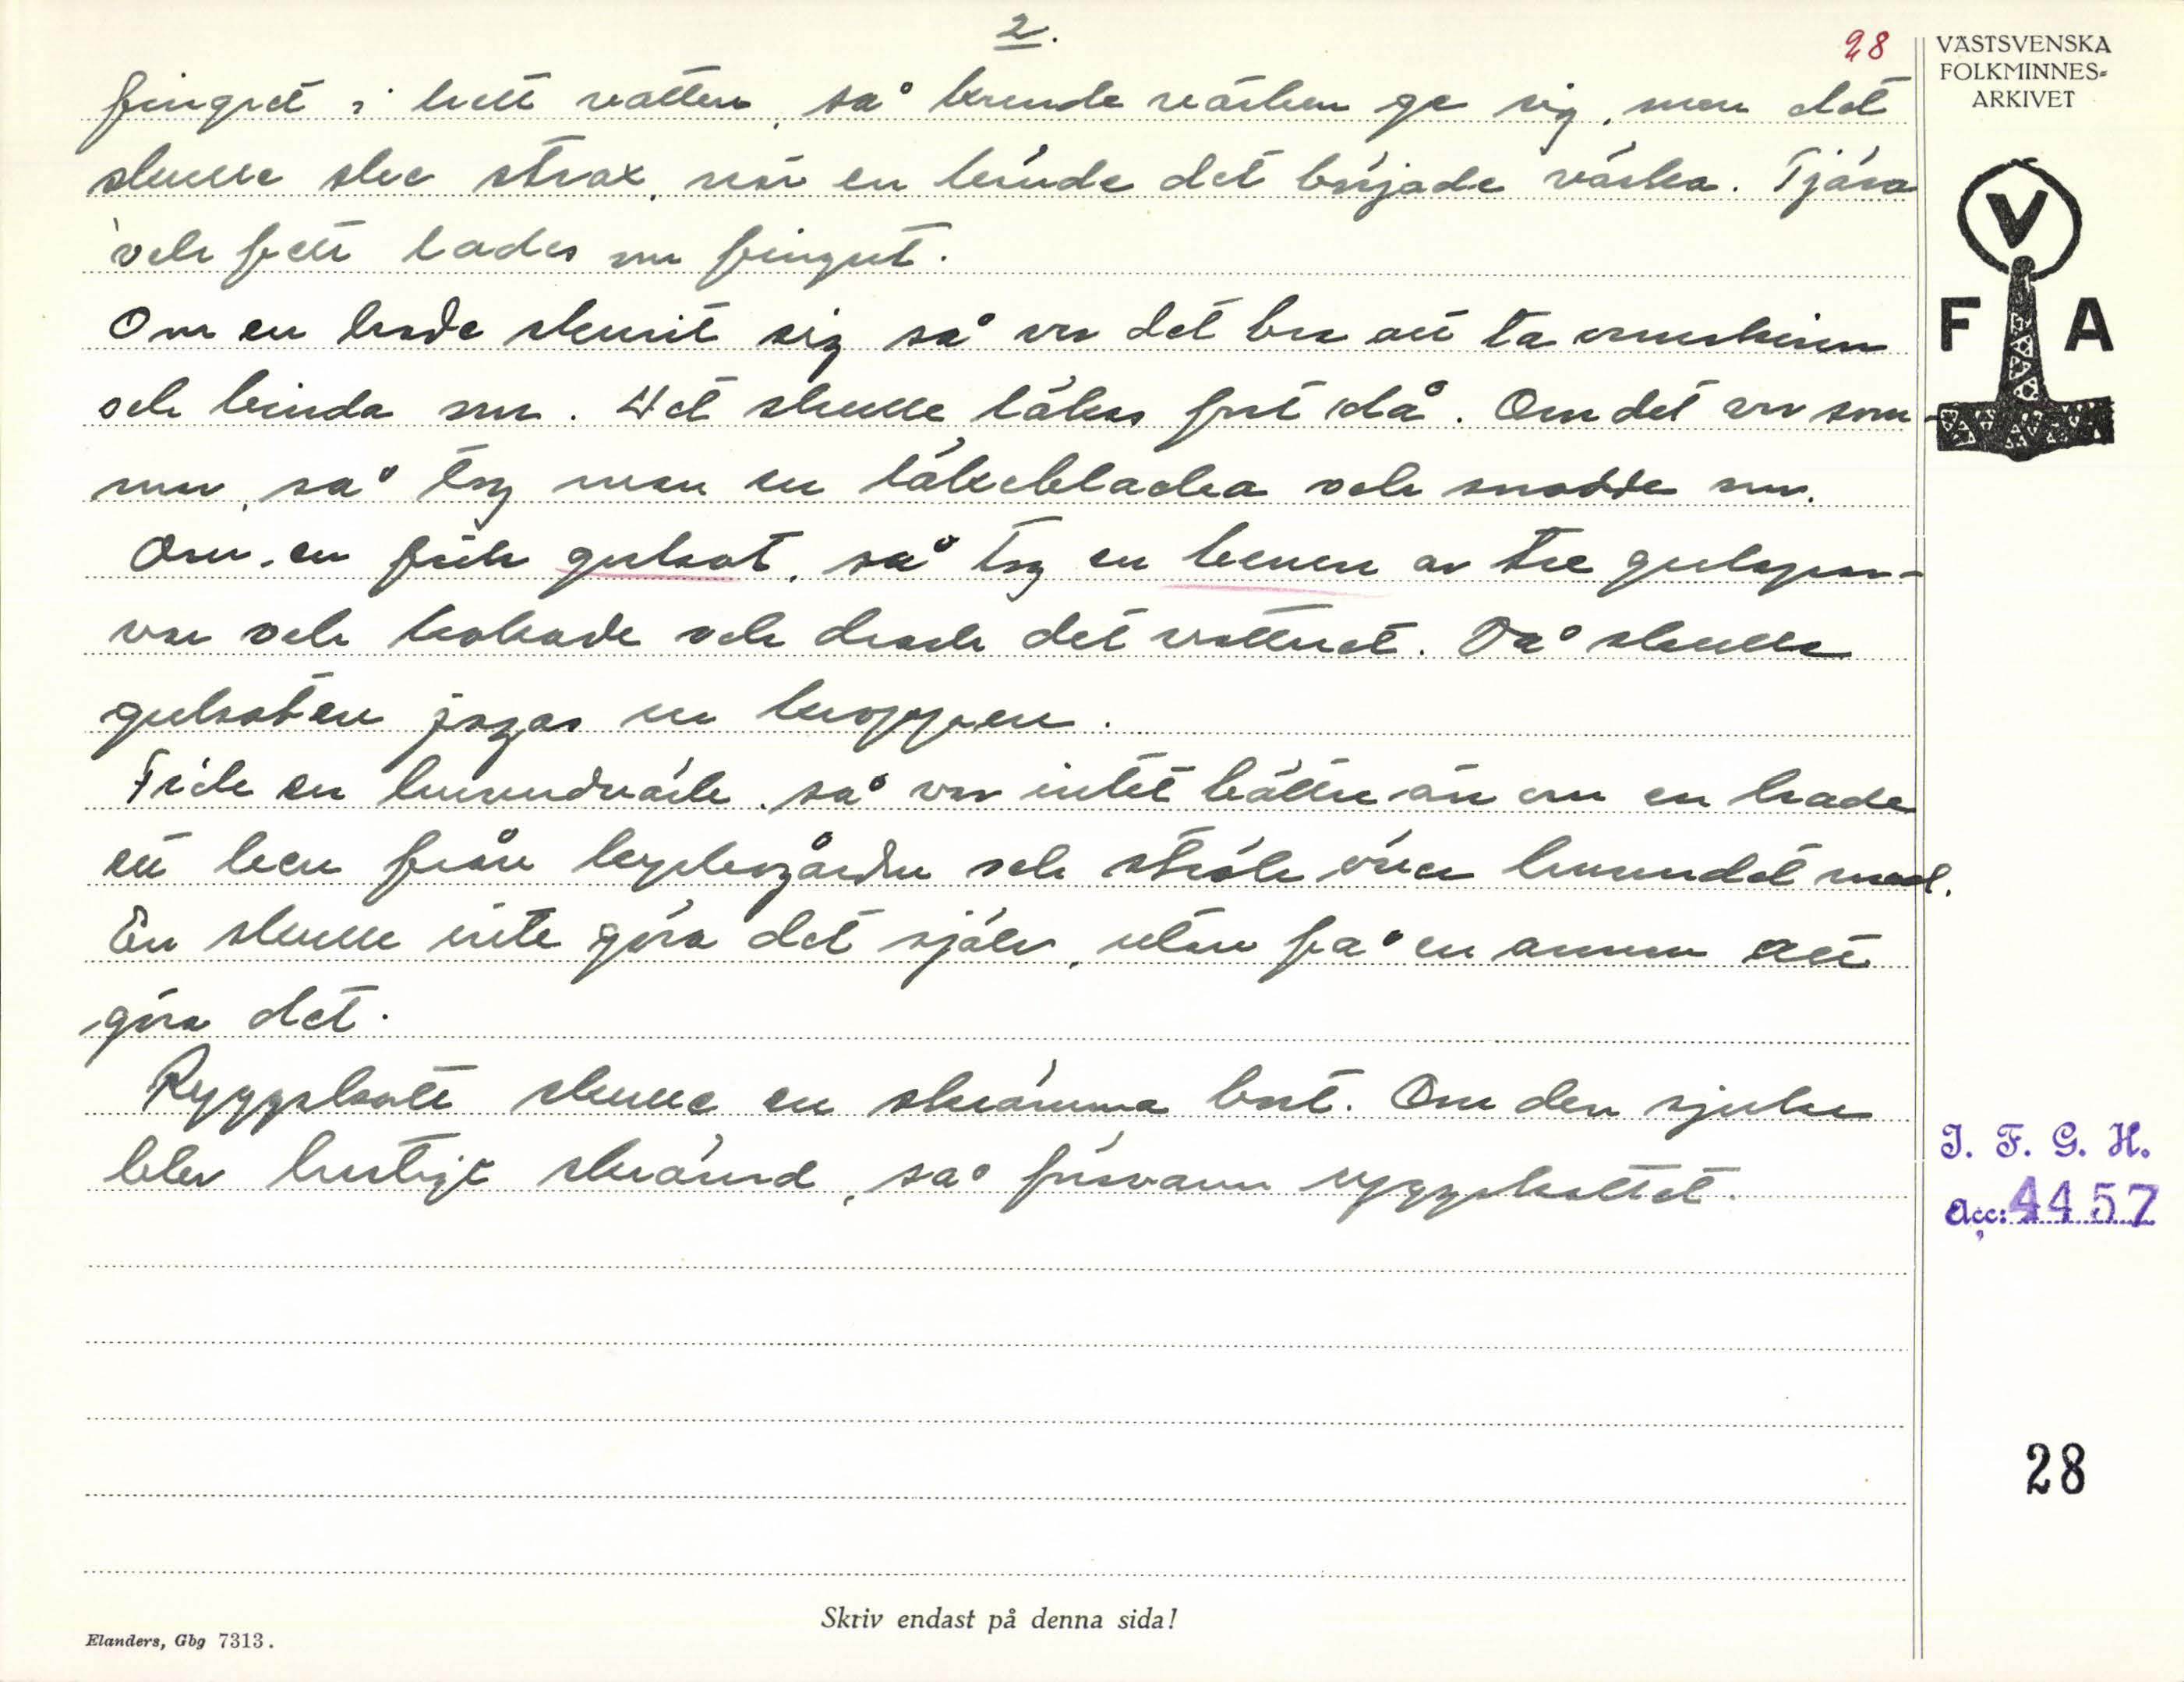 2.
28
VÄSTSVENSKA
FOLKMINNES-
ARKIVET
fingret i hett vatten, så kunde värken ge sig, men det
skulle ske strax, när en kände det började värka. Tjära
och fett lades om fingret.
Om en hade skurit sig så var det bra att ta ormskinn
och binda om. Det skulle läkas fort då. Om det var som-
mar, så tog man en läkeblacka och snodde om.
Om en fick gulsot, så tog en benen av tre gulspar-
var och kokade och drack det vattnet. Då skulle
gulsoten jagas ur kroppen.
Fick en huvudvärk, så var intet bättre än om en hade
ett ben från kyrkogården och strök över huvudet med.
En skulle inte göra det själv, utan få en annan att
göra det.
Ryggskott skulle en skrämma bort. Om den sjuke
blev hastigt skrämd, så försvann ryggskottet.
V
F A
I. F. G. H.
Acc: 4457
28
Skriv endast på denna sida!
Elanders, Gbg 7313.